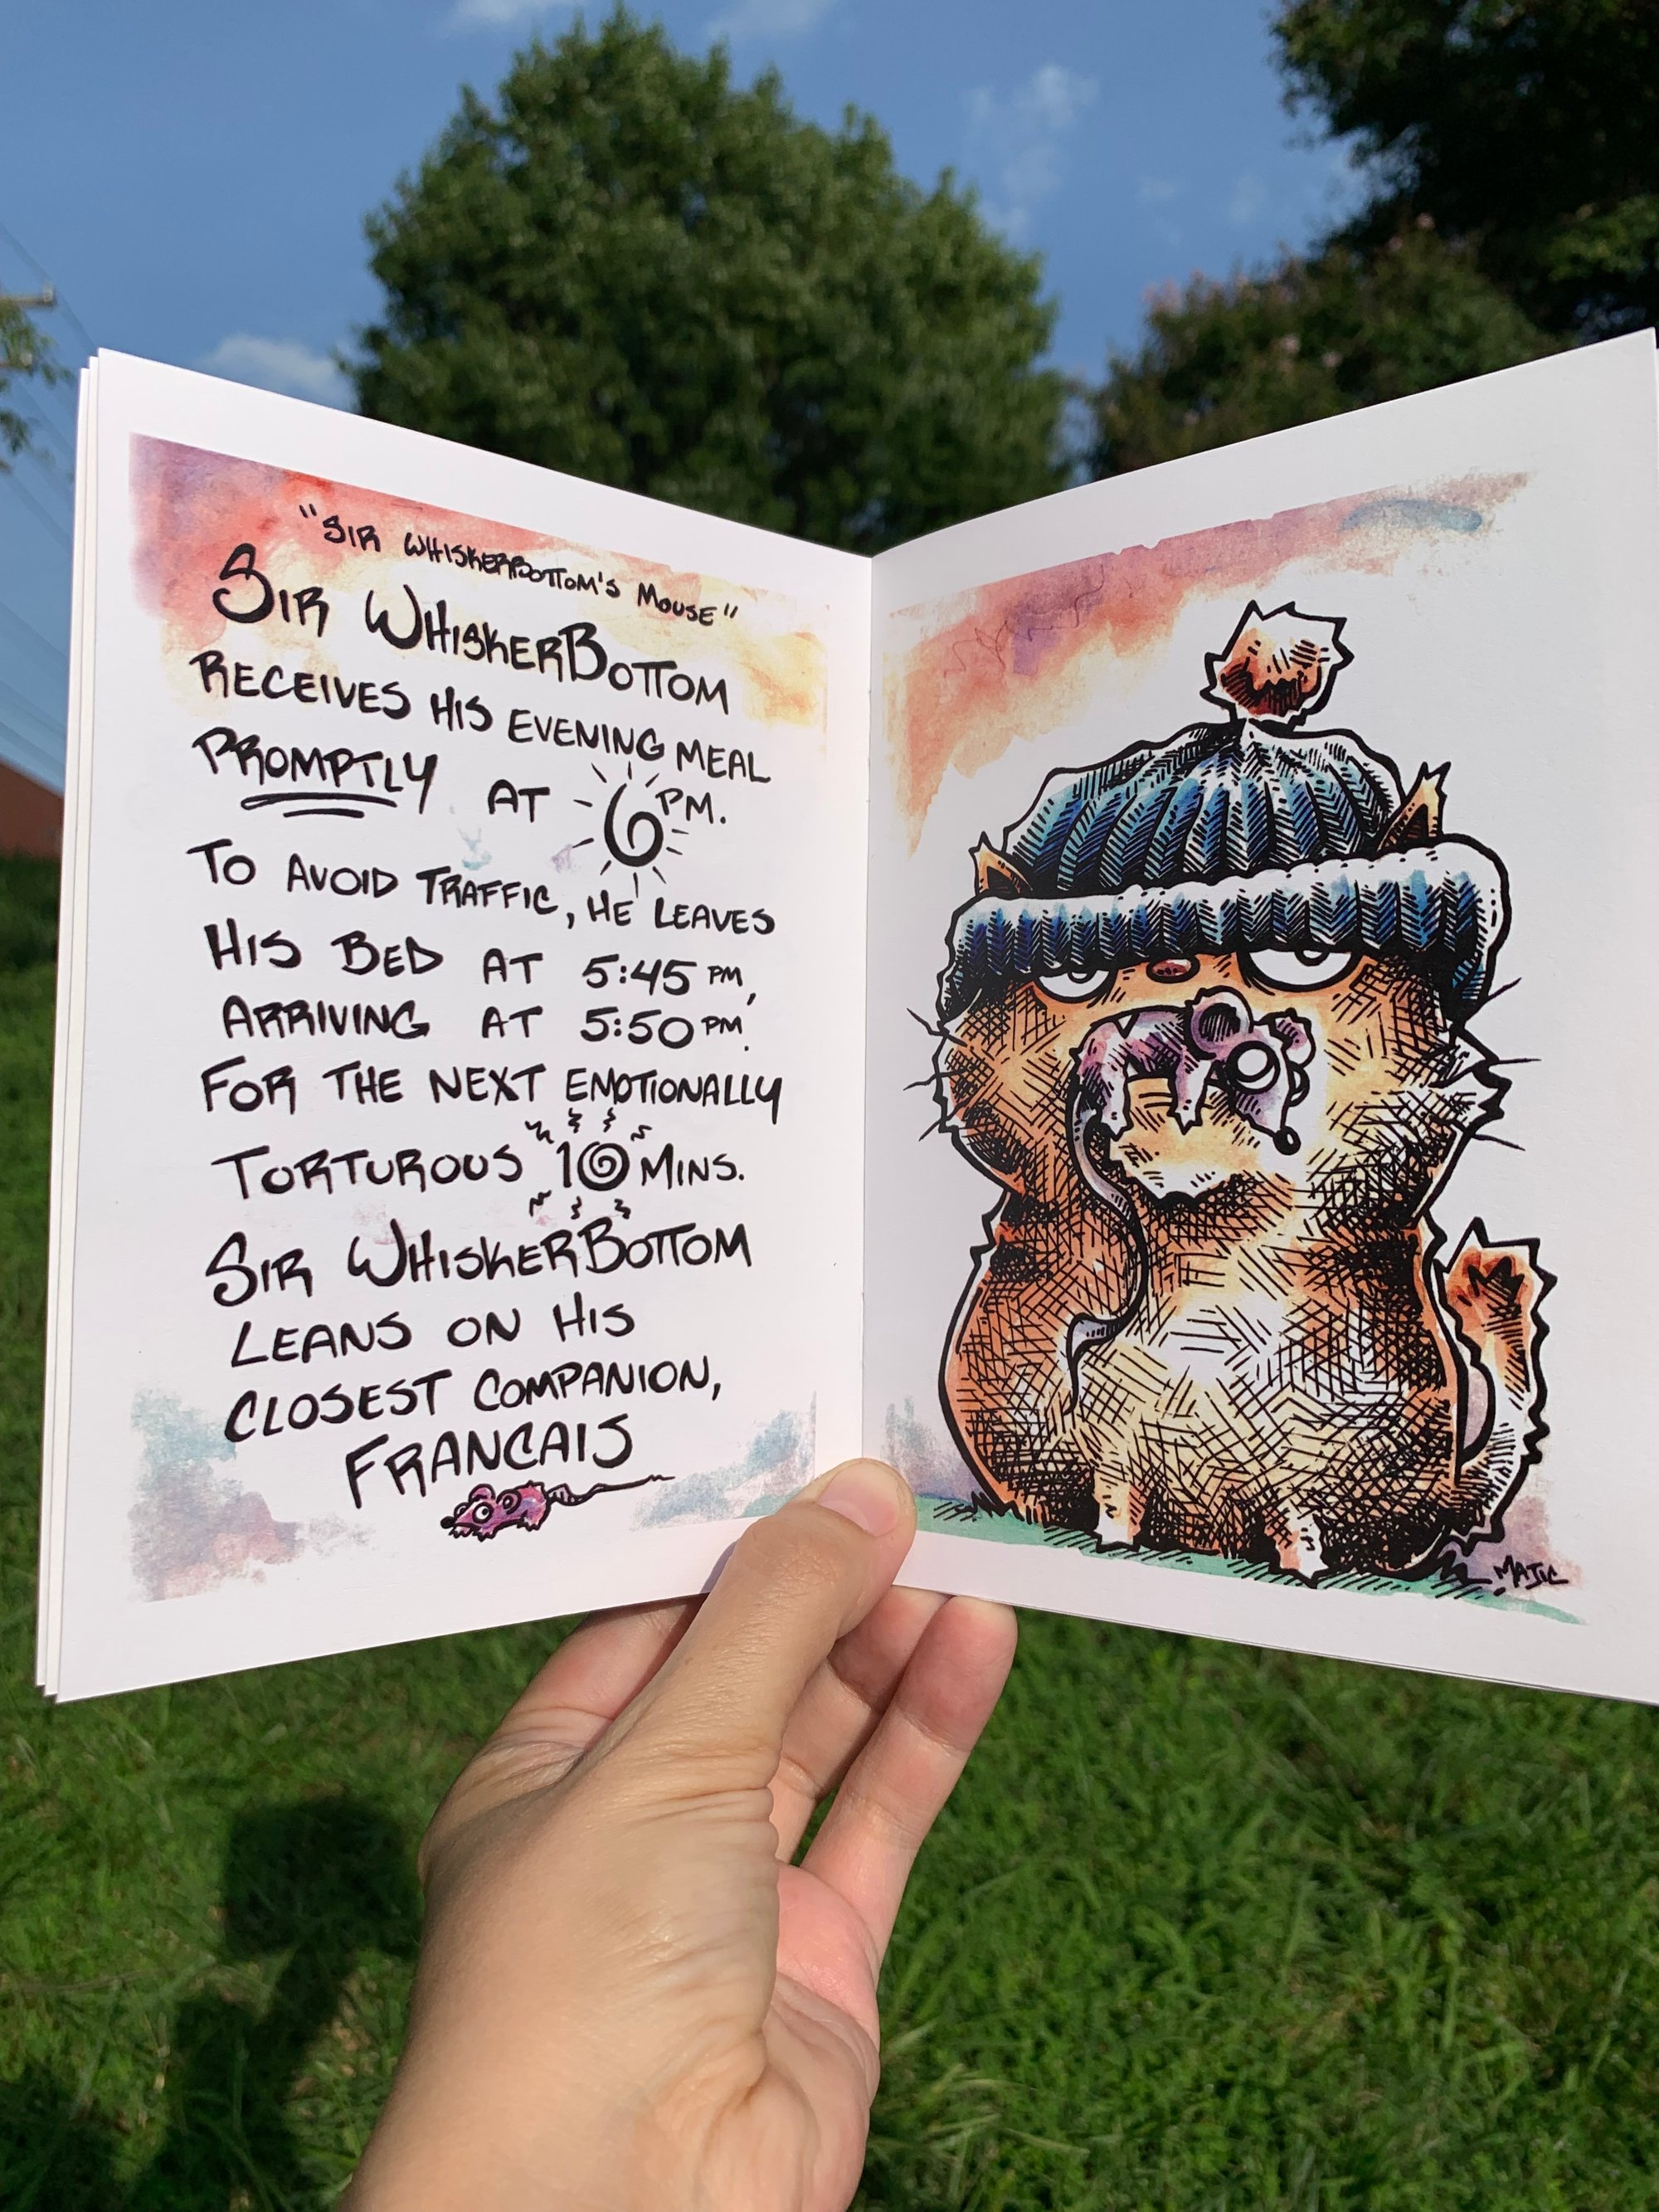 "Sir WhiskerBottom's Mouse"
Sir WhiskerBottom
receives his evening meal
promptly at 6 pm.
To avoid traffic, he leaves
his bed at 5:45 pm,
arriving at 5:50 pm.
For the next emotionally
torturous 10 mins.
Sir WhiskerBottom
leans on his
closest companion,
Francais
Majic